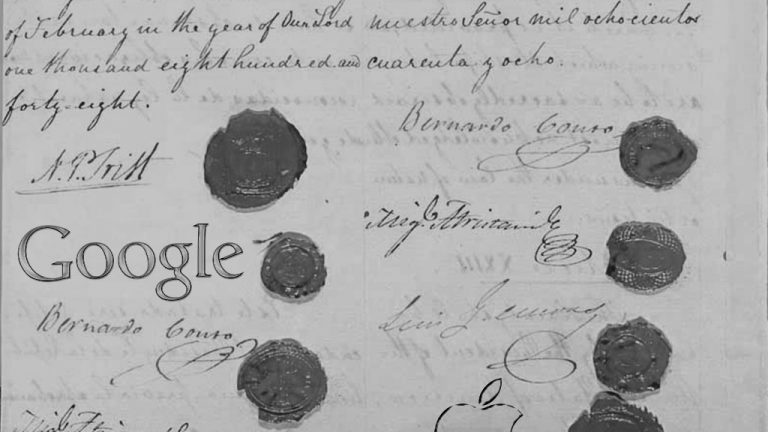 of February in the year of Our Lord
one thousand eight hundred and
forty-eight.
nuestro Señor mil ochocientos
cuarenta y ocho.
N. P. Trist
Google
Bernardo Couto
Bernardo Couto
Luis